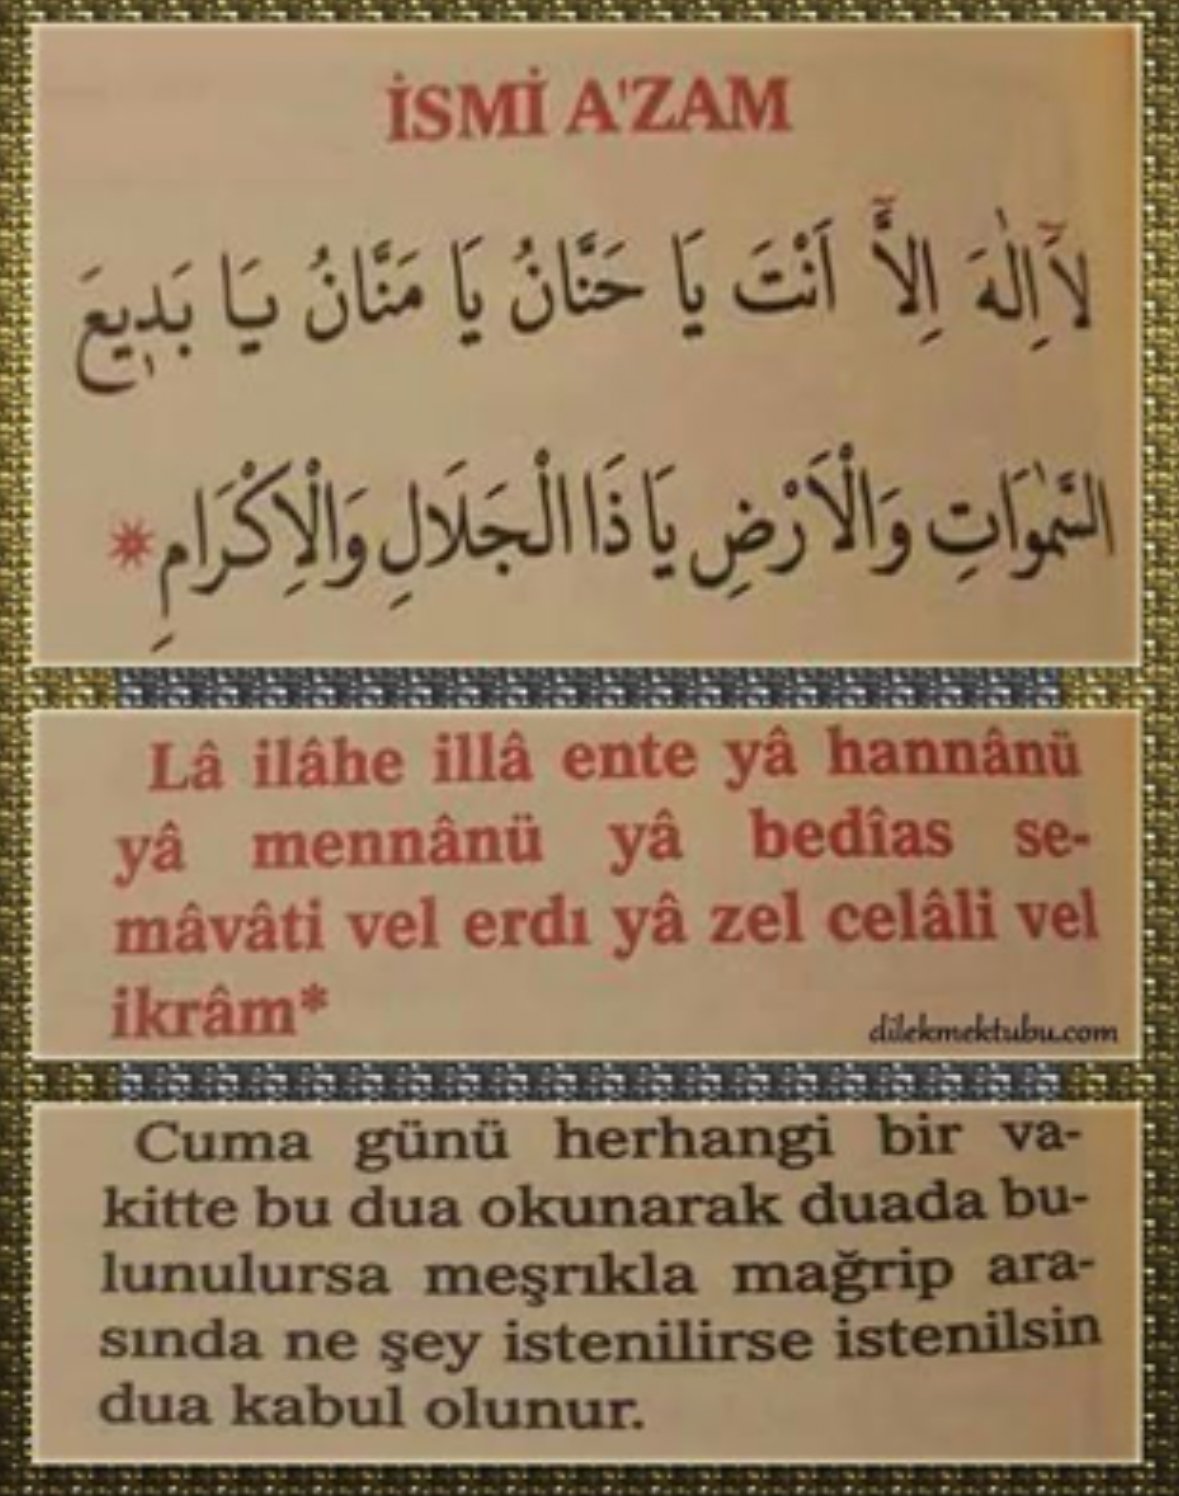 İSMİ A'ZAM
لَآ اِلٰهَ اِلَّآ اَنْتَ يَا حَنَّانُ يَا مَنَّانُ يَا بَد۪يعَ
السَّمٰوَاتِ وَالْاَرْضِ يَا ذَا الْجَلَالِ وَالْاِكْرَامِ *
Lâ ilâhe illâ ente yâ hannânü
yâ mennânü yâ bedîas se-
mâvâti vel erdı yâ zel celâli vel
ikrâm*
dilekmektubu.com
Cuma günü herhangi bir va-
kitte bu dua okunarak duada bu-
lunulursa meşrıkla mağrip ara-
sında ne şey istenilirse istenilsin
dua kabul olunur.